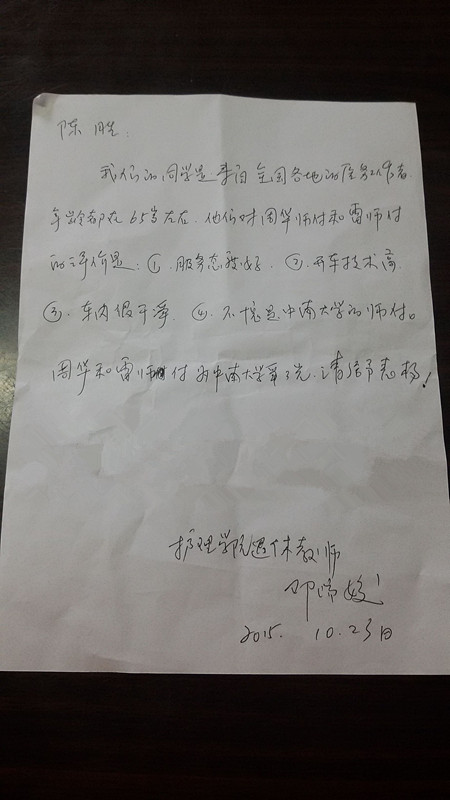 陈胜:
我们的同学是来自全国各地的医务工作者
年龄都在65岁左右.他们对周华师付和雷师付
的评价是:①.服务态度好.②.开车技术高.
③.车内很干净.④.不愧是中南大学的师付。
周华和雷师付为中南大学争了光.请给予表扬!
护理学院退休教师
2015.10.23日